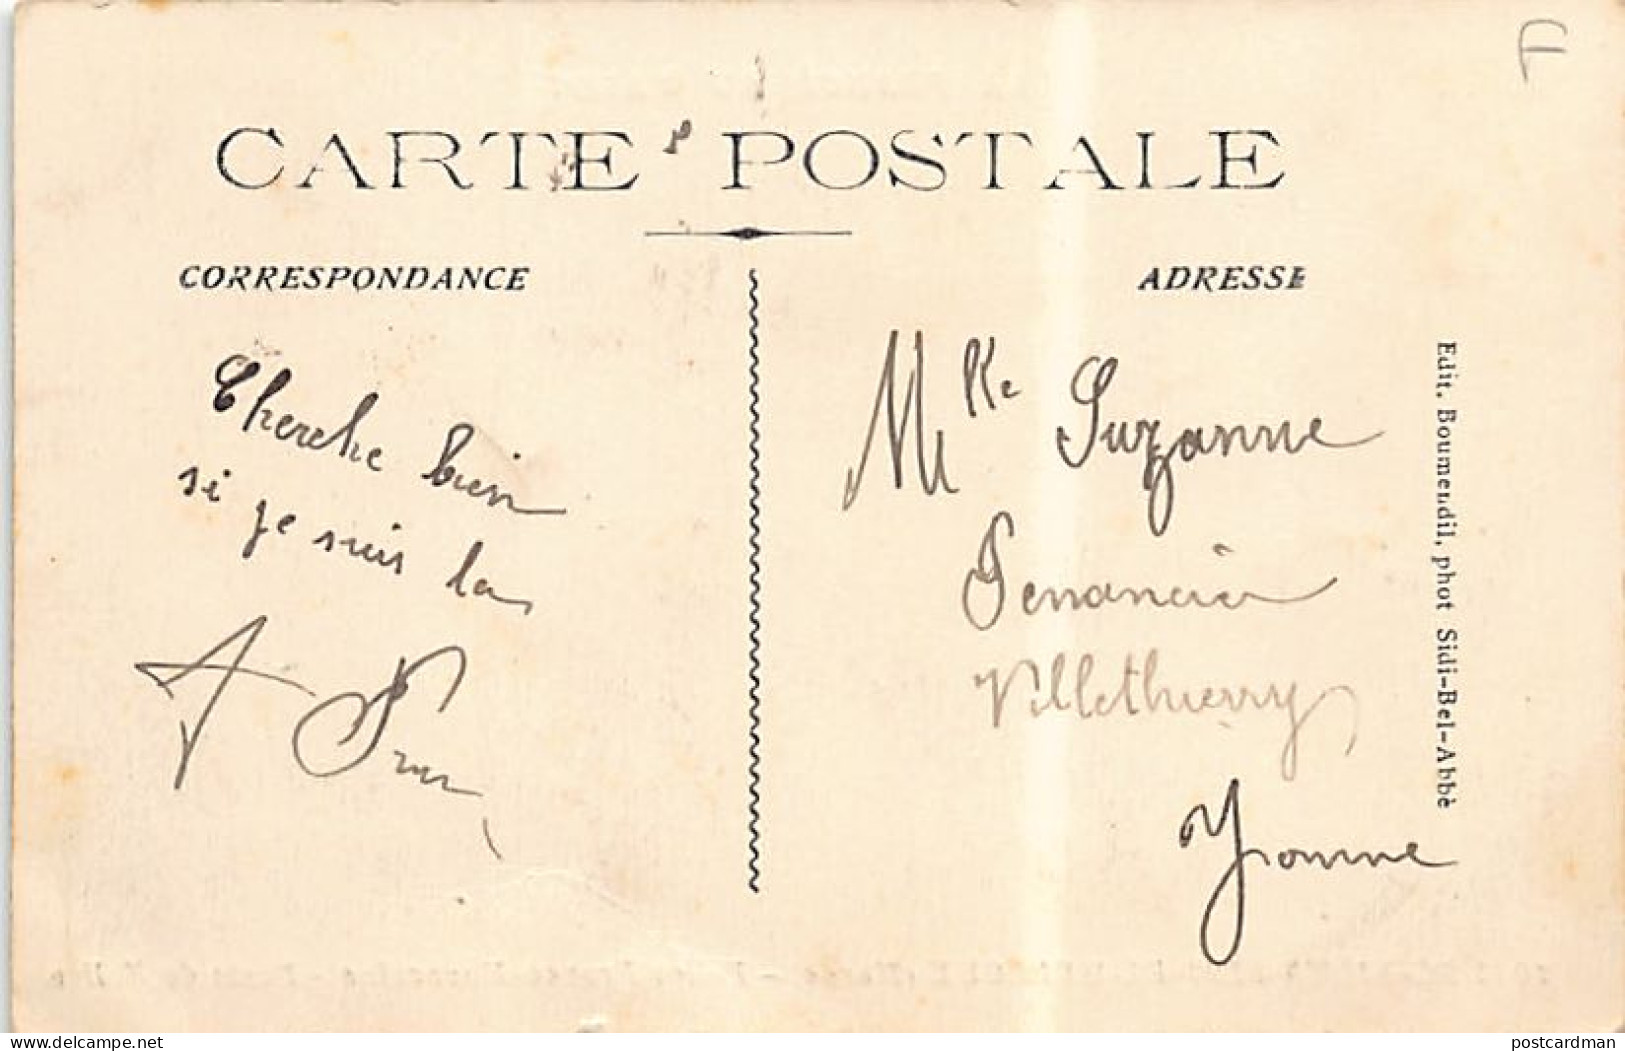 F
CARTE POSTALE
CORRESPONDANCE
ADRESSE
Cherche bien
si je suis la
Mlle Suzanne
Villethierry
Yonne
Edit. Boumendil, phot Sidi-Bel-Abbè
delcampe.net
postcardman